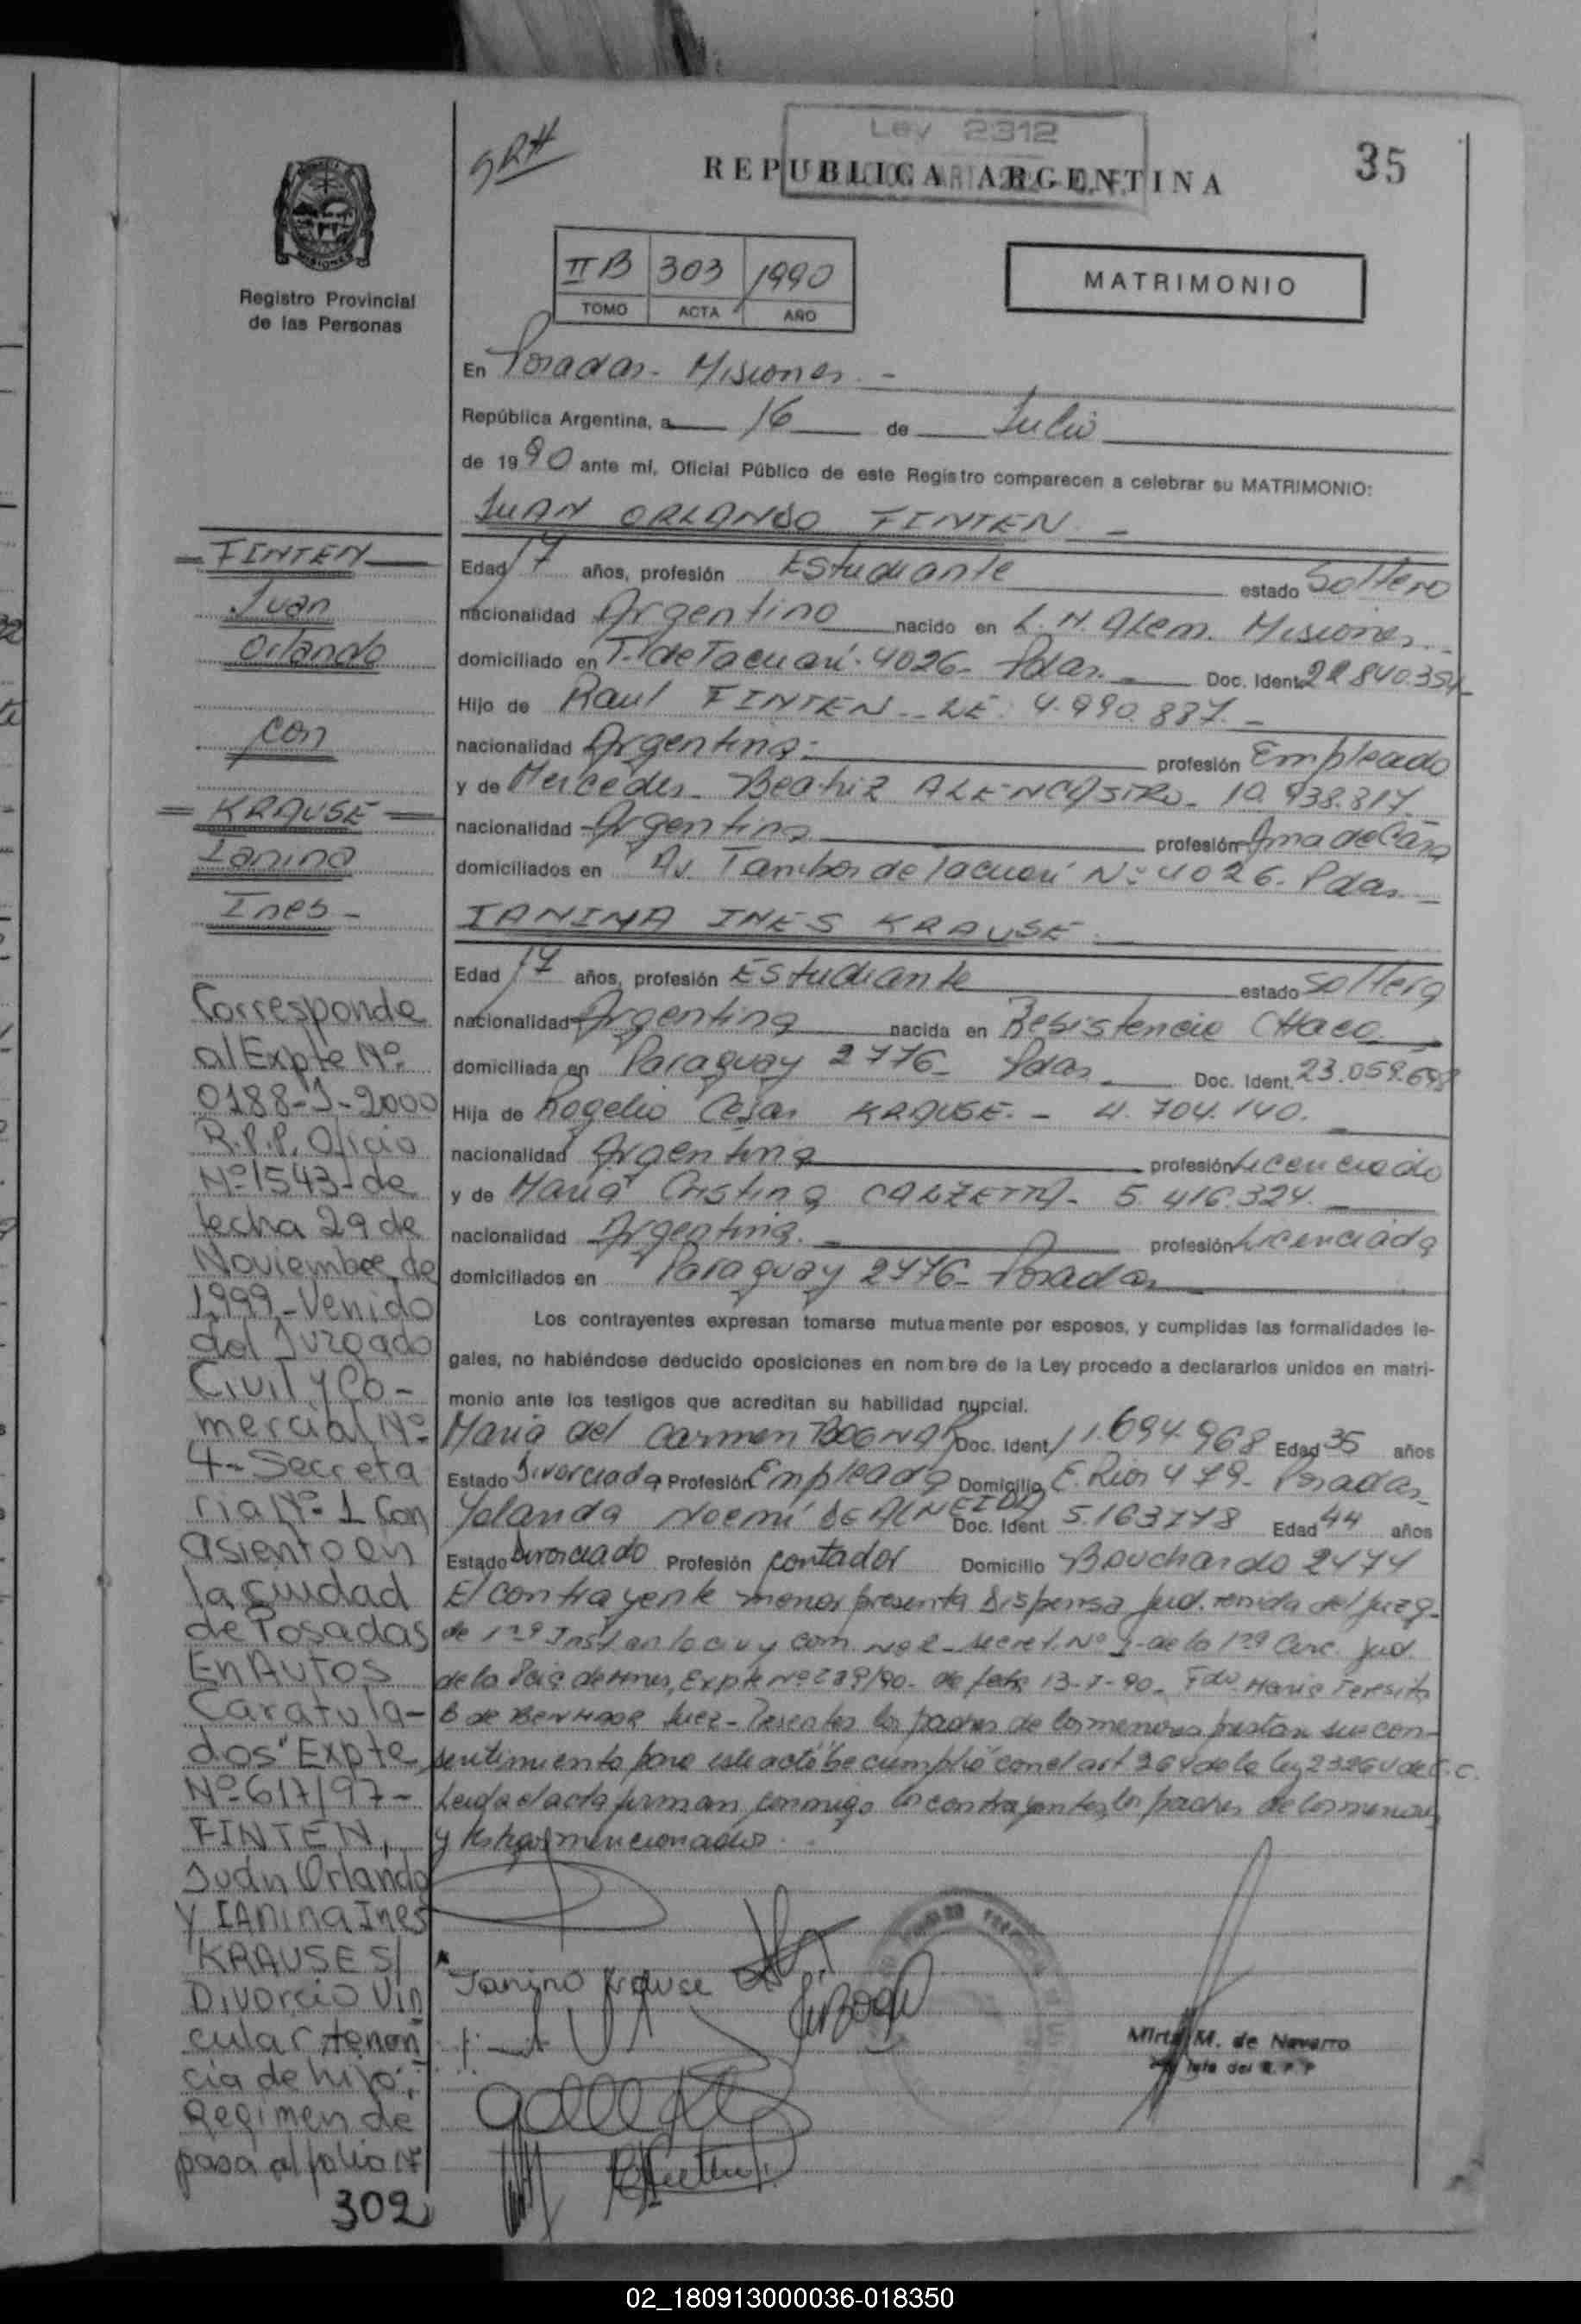 Ley 2312
REPUBLICA ARGENTINA
35
SRH
Registro Provincial
de las Personas
II B 303 1990
TOMO ACTA AÑO
MATRIMONIO
En Posadas - Misiones. -
República Argentina, a 16 de Julio
de 1990 ante mí, Oficial Público de este Registro comparecen a celebrar su MATRIMONIO:
JUAN ORLANDO FINTEN. -
Edad 17 años, profesión Estudiante estado Soltero
nacionalidad Argentino nacido en L. N. Alem. Misiones.
domiciliado en T. de Tacuari. 4026 - Pdas. - Doc. Ident. 22.840.354-
Hijo de Raul FINTEN - LE: 4.990.887. -
nacionalidad Argentina.- profesión Empleado
y de Mercedes - Beatriz ALENCASTRO - 10.938.817.
nacionalidad Argentina profesión Ama de Casa
domiciliados en Av. Tambor de Tacuari Nº 4026. Pdas. -
IANINA INES KRAUSE. -
Edad 17 años, profesión Estudiante estado soltera
nacionalidad Argentina nacida en Resistencia CHaco.
domiciliada en Paraguay 2776 - Pdas. Doc. Ident. 23.059.698
Hija de Rogelio Cesar KRAUSE. - 4.704.140. -
nacionalidad Argentina profesión Licenciado
y de Maria Cristina CALZETTA - 5.416.324. -
nacionalidad Argentina. - profesión Licenciada
domiciliados en Paraguay 2776 - Posadas
Los contrayentes expresan tomarse mutuamente por esposos, y cumplidas las formalidades le-
gales, no habiéndose deducido oposiciones en nombre de la Ley procedo a declararlos unidos en matri-
monio ante los testigos que acreditan su habilidad nupcial.
Maria del Carmen Doc. Ident. 11.694.968 Edad 35 años
Estado Divorciada Profesión Empleada Domicilio E. Rios 479 - Posadas -
Yolanda Noemí DE ALMEIDA Doc. Ident. 5.163.778 Edad 44 años
Estado Divorciado Profesión contador Domicilio Bouchardo 2474
El contrayente menor presenta Dispensa Jud. venida del Juzg.
de 1ra Inst. en lo civ y com. Nº 2 - Secret. Nº 1 - de la 1ra Circ. Jud.
de la Pcia de Mnes, Expte Nº 239/90 - de fecha 13-7-90 - Fdo. Maria Teresita
B de Juez - Presentes los padres de los menores prestan su con-
sentimiento para este acto se cumplió con el art 264 de la ley 23264 del C.C.
Leida el acta firman conmigo los contrayentes, los padres de los menores
y testigos mencionados.
Ianina Krause
Mirta M. de Navarro
Jefe del R. P. P
= FINTEN =
Juan
Orlando
con
= KRAUSE =
Ianina
Ines -
Corresponde
al Expte Nº
0188-J-2000
R.P.P. Oficio
Nº 1543 - de
fecha 29 de
Noviembre de
1999 - Venido
del Juzgado
Civil y Co-
mercial Nº
4 - Secreta
ria Nº 1 Con
asiento en
la ciudad
de Posadas
En Autos
Caratula-
dos "Expte
Nº 617/97 -
FINTEN,
Juan Orlando
y IANina Ines
KRAUSE S/
Divorcio Vin
cular, tenen
cia de hijo,
Regimen de
pasa al folio Nº
302
02_180913000036-018350